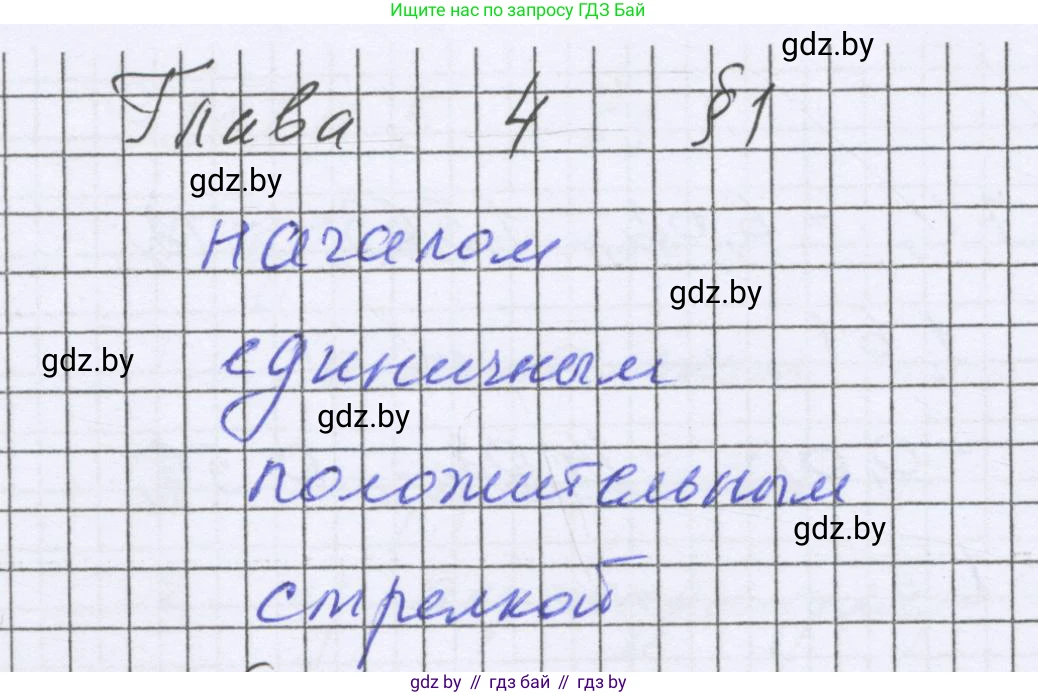 Ищите нас по запросу ГДЗ Бай
gdz.by
Глава 4 §1
gdz.by
началом
gdz.by
единичным
gdz.by
gdz.by
положительным
gdz.by
стрелкой
gdz.by // гдз бай // гдз by